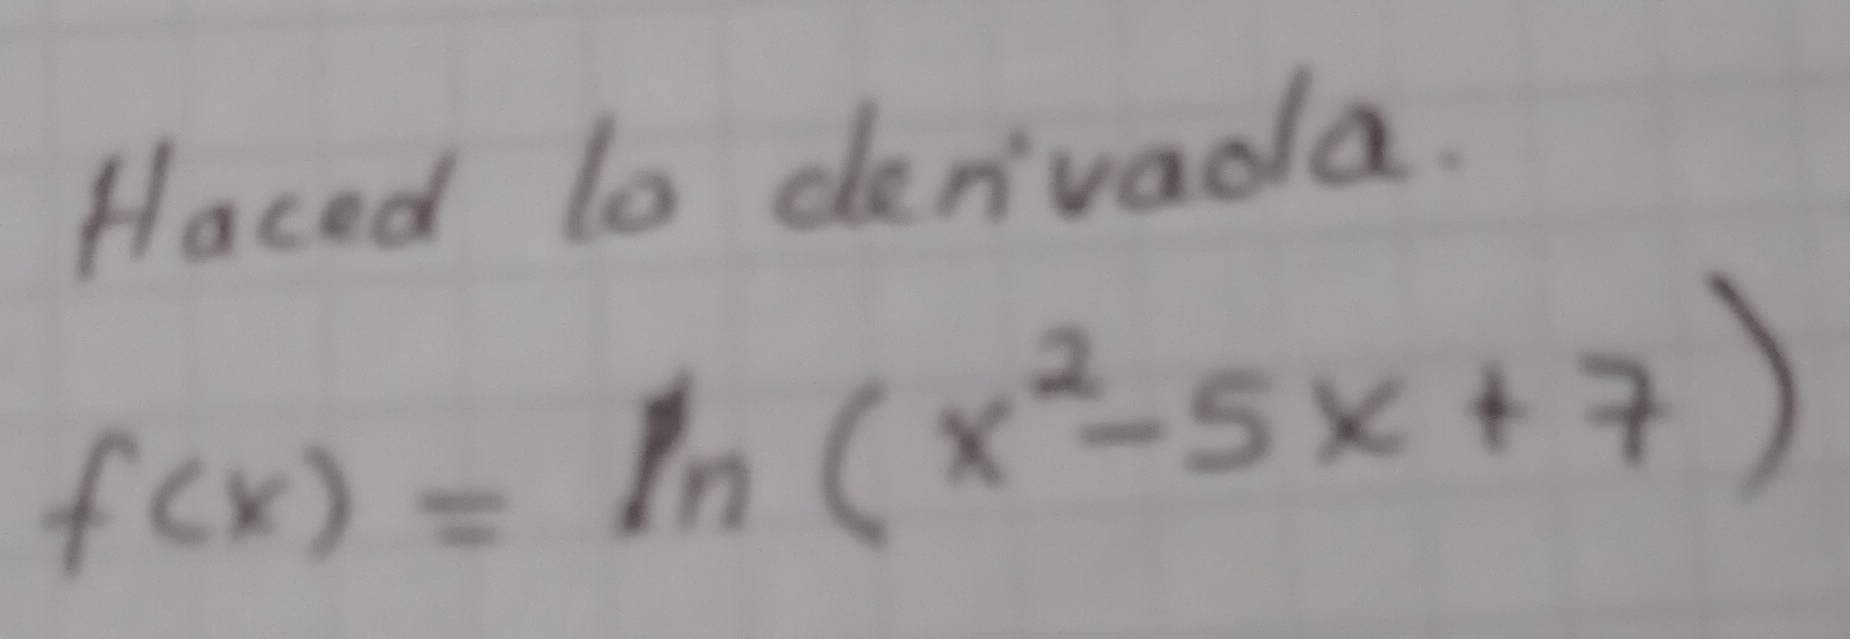 Haced la derivada.
f(x) = ln (x² - 5x + 7)